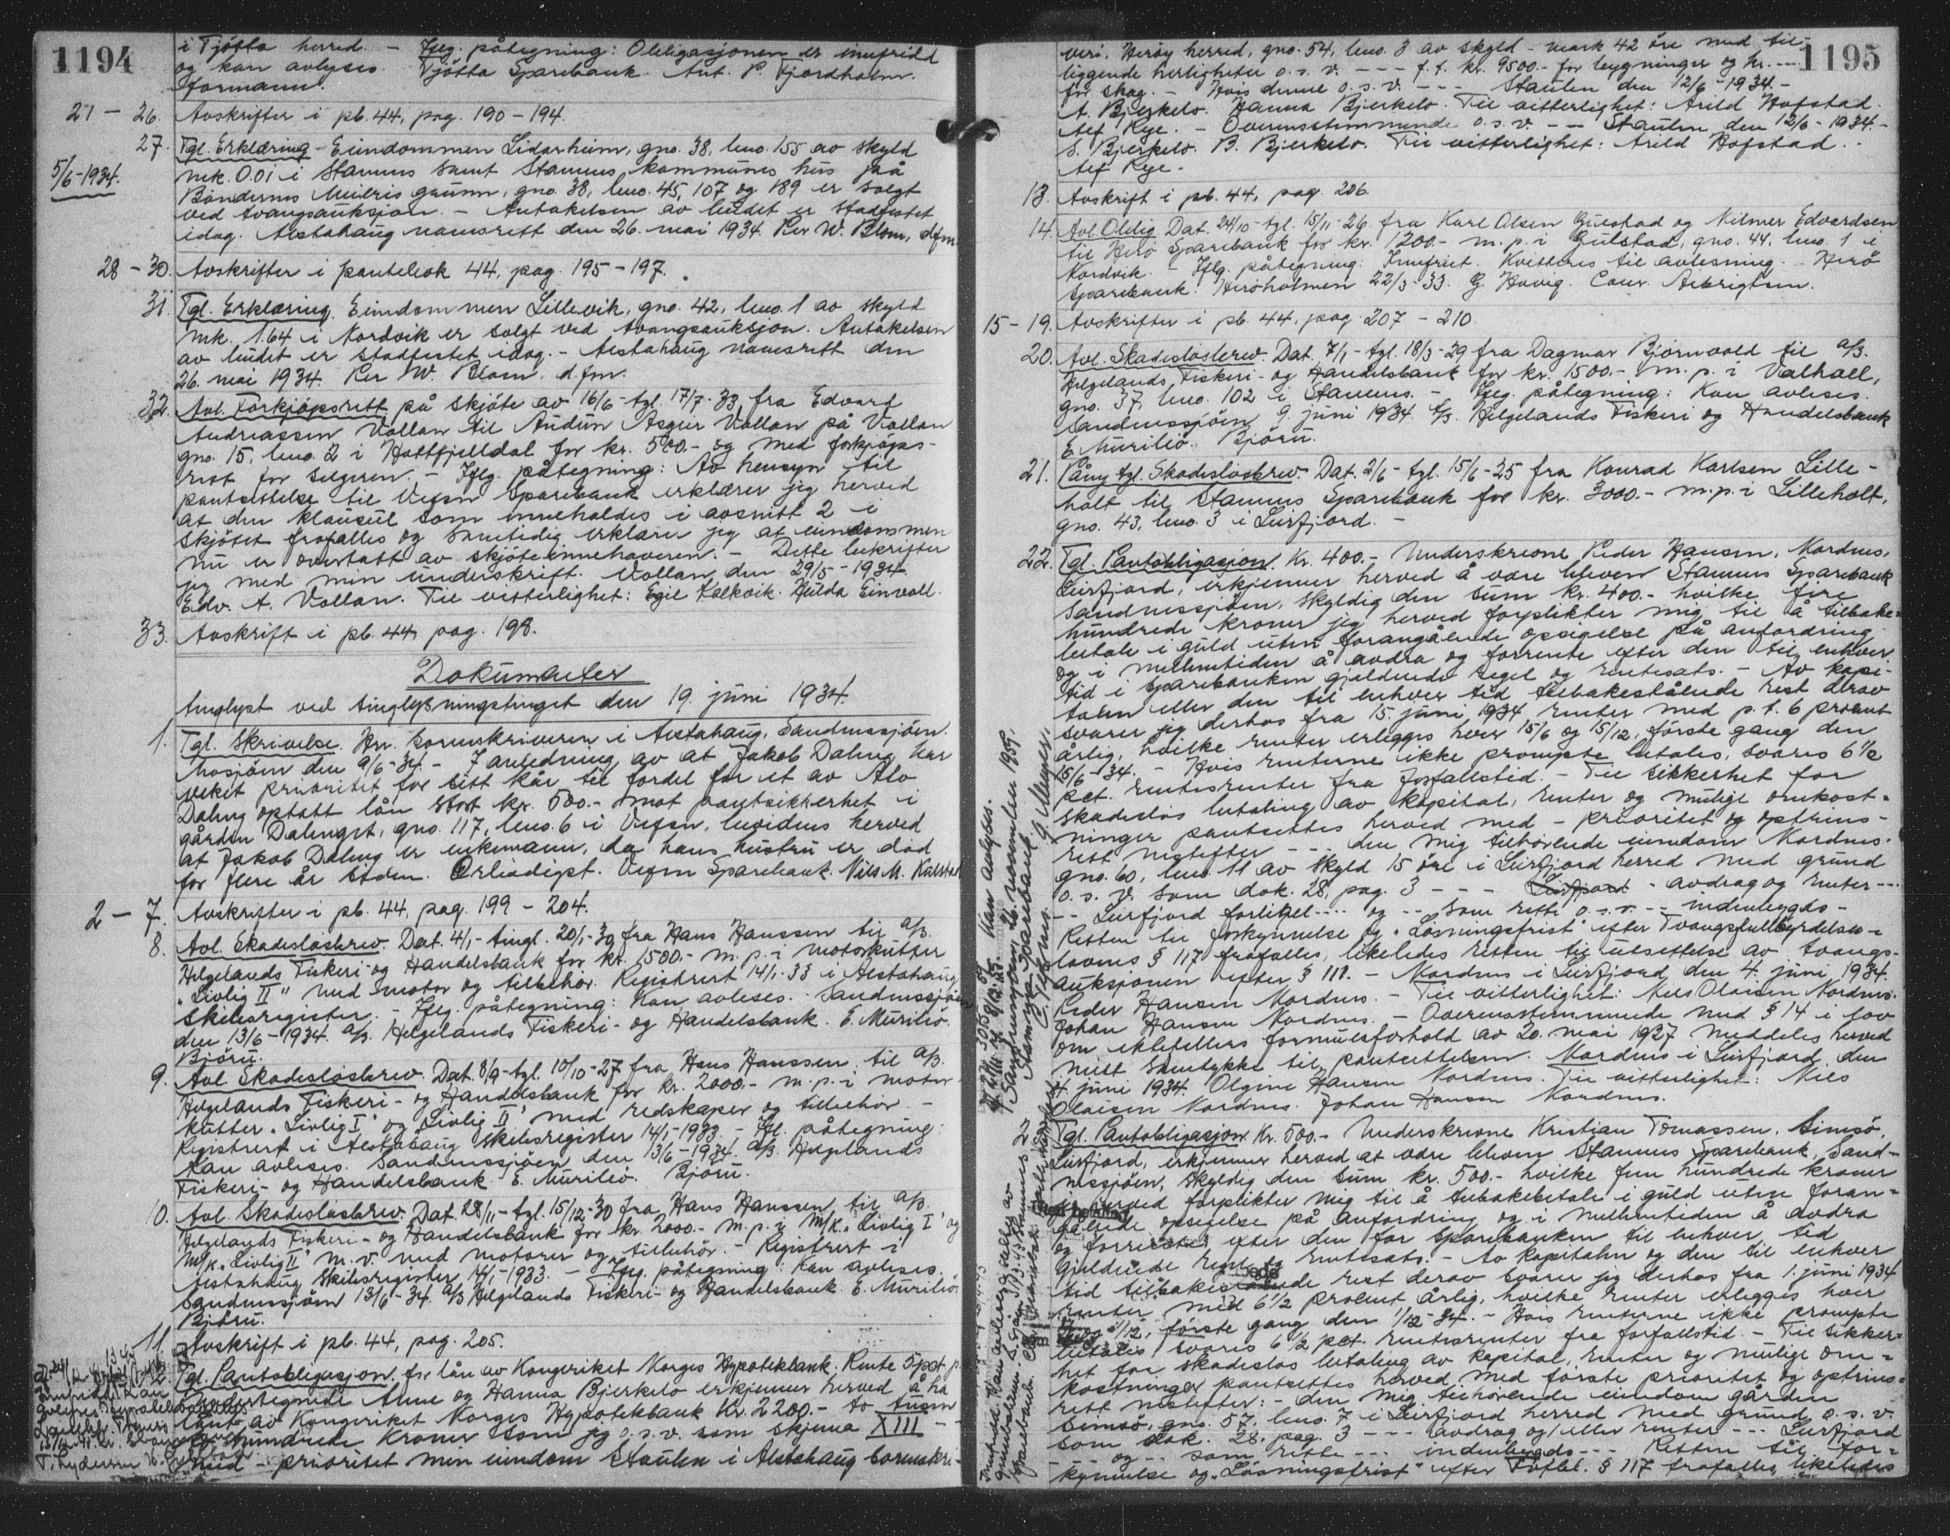 1194
i Tjøtta herred. - Iflg. påtegning: Obligasjonen er innfridd
og kan avlyses. Tjøtta Sparebank. Ant. P. Fjordholm.
formann.
21 - 26. Avskrifter i pb. 44, pag. 190 - 194.
27. Tgl. Erklæring - Eiendommen Lidarheim, gno. 38, bno. 155 av skyld
5/6-1934. mk. 0.01 i Stamnes samt Stamnes kommunes hus på
Bøndernes Meieris grunn, gno. 38, bno. 45, 107 og 189 er solgt
ved tvangsauksjon. - Antakelsen av budet er stadfestet
idag. Alstahaug namsrett den 26. mai 1934. Per W. Blom, dfm.
28 - 30. Avskrifter i pantebok 44, pag. 195 - 197.
31. Tgl. Erklæring. Eiendommen Lillevik, gno. 42, bno. 1 av skyld
mk. 1.64 i Nordvik er solgt ved tvangsauksjon. Antakelsen
av budet er stadfestet idag. - Alstahaug namsrett den
26. mai 1934. Per W. Blom. d.fm.
32. Avl. Forkjøpsrett på skjøte av 16/6 - tgl. 17/7-33 fra Edvard
Andreassen Vollan til Audun Asgeir Vollan på Vollan
gno. 15, bno. 2 i Hattfjelldal for kr. 500.- og med forkjøps-
rett for selgeren. - Iflg. påtegning: Av hensyn til
pantsettelse til Vefsn Sparebank erklærer jeg herved
at den klausul som inneholdes i avsnitt 2 i
skjøtet frafalles og samtidig erklærer jeg at eiendommen
nu er overtatt av skjøteinnehaveren. - Dette bekrifter
jeg med min underskrift. Vollan den 29/5 - 1934
Edv. A. Vollan. Til vitterlighet: Egil Kalkvik. Hulda Einvoll.
33. Avskrift i pb. 44, pag. 198.
Dokumenter
tinglyst ved tinglysningstinget den 19. juni 1934.
1. Tgl. Skrivelse. Hr. Sorenskriveren i Alstahaug, Sandnessjøen.
Mosjøen den 9/6-34. - I anledning av at Jakob Daling har
veket prioritet for sitt kår til fordel for et av Alv
Daling optatt lån stort kr. 500.- mot pantsikkerhet i
gården Dalenget, gno. 117, bno. 6 i Vefsn, bevidnes herved
at Jakob Daling er enkemann, da hans hustru er død
for flere år siden. Ærbødigst. Vefsn Sparebank. Nils M. Kulstad
2 - 7. Avskrifter i pb. 44, pag. 199 - 204.
8. Avl. Skadesløsbrev. Dat. 4/1 - tingl. 20/1-30 fra Hans Hanssen til A/S.
Helgelands Fiskeri- og Handelsbank for kr. 1500.- m.p. i motorkutter
"Livlig II" med motor og tilbehør. Registrert 14/1-33 i Alstahaug
skibsregister. - Iflg. påtegning: Kan avlyses. Sandnessjøen
den 13/6 - 1934. A/S. Helgelands Fiskeri- og Handelsbank. E. Murilio.
Bjøru.
9. Avl. Skadesløsbrev. Dat. 8/9 - tgl. 10/10 - 27 fra Hans Hanssen til A/S.
Helgelands Fiskeri- og Handelsbank for kr. 2000.- m.p. i motor-
kutter "Livlig I" og "Livlig II" med redskaper og tilbehør -
Registrert i Alstahaug skibsregister 14/1-1933 - Ifl. påtegning:
Kan avlyses. Sandnessjøen den 13/6 - 1934. A/S. Helgelands
Fiskeri- og Handelsbank. E. Murilio. Bjøru.
10. Avl. Skadesløsbrev. Dat. 28/11 - tgl. 15/12-30 fra Hans Hanssen til A/S.
Helgelands Fiskeri- og Handelsbank for kr. 2000.- m.p. i M/K. "Livlig I" og
M/K. "Livlig II" m.v. med motorer og tilbehør. - Registrert i
Alstahaug skibsregister 14/1-1933. - Iflg. påtegning: Kan avlyses.
Sandnessjøen 13/6-34. A/S Helgelands Fiskeri- og Handelsbank. E. Murilio.
Bjøru.
11. Avskrift i pb. 44, pag. 205.
12. Tgl. Pantobligasjon for lån av Kongeriket Norges Hypotekbank. Rente 5 pct. p.
Undertegnede Arne og Hanna Bjerkelo erkjenner herved å ha
lånt av Kongeriket Norges Hypotekbank Kr. 2200.- to tusen
og hundrede kroner som jeg o.s.v. som skjema XIII - -
med - prioritet min eiendom Staulen i Alstahaug sorenskri-
1195
veri. Herøy herred, gno. 54, bno. 3 av skyld - mark 42 øre med til-
liggende herligheter o.s.v. - - - f.t. kr. 9500.- for bygninger og kr. ---
for skog. - Hvis denne o.s.v. - - - Staulen den 12/6 - 1934. -
A. Bjerkelo. Hanna Bjerkelo. Til vitterlighet: Arild Hofstad.
Alf Rye. - Overensstemmende o.s.v. - - Staulen den 12/6 - 1934 -
S. Bjerkelo. B. Bjerkelo. Til vitterlighet: Arild Hofstad.
Alf Rye.
13. Avskrift i pb. 44, pag. 206.
14. Avl. Oblig. Dat. 24/10 - tgl. 15/11-26 fra Karl Olsen Gulstad og Hilmer Edvardsen
til Herø Sparebank for kr. 1200.- m.p. i Gulstad, gno. 44, bno. 1 i
Nordvik. - Iflg. påtegning: Innfriet. Kvitteres til avlesning. - Herø
Sparebank. Herøholmen 22/3-33. G. Haug. Conr. Albrigtsen.
15 - 19. Avskrifter i pb. 44, pag. 207 - 210
20. Avl. Skadesløsbrev. Dat. 7/1 - tgl. 18/3-29 fra Dagmar Bjørnvold til A/S.
Helgelands Fiskeri- og Handelsbank for kr. 1500.- m.p. i Valhall,
gno. 37, bno. 102 i Stamnes. - Iflg. påtegning: Kan avlyses.
Sandnessjøen 9. juni 1934. A/S. Helgelands Fiskeri og Handelsbank
E. Murilio. Bjøru.
21. Påny tgl. Skadesløsbrev. Dat. 2/6 - tgl. 15/6-25 fra Konrad Karlsen Lille-
holt til Stamnes Sparebank for kr. 3000.- m.p. i Lilleholt,
gno. 43, bno. 3 i Leirfjord. -
22. Tgl. Pantobligasjon. Kr. 400.- Underskrevne Peder Hansen, Nordnes,
Leirfjord, erkjenner herved å være bleven Stamnes Sparebank
Sandnessjøen, skyldig den sum kr. 400.- hvilke fire
hundrede kroner jeg herved forplikter mig til å tilbake-
betale i guld uten forangående opsigelse på anfordring
og i mellemtiden å avdra og forrente efter den til enhver
tid i Sparebanken gjeldende regel og rentesats. - Av kapi-
talen eller den til enhver tid tilbakestående rest derav
svarer jeg derhos fra 15. juni 1934 renter med p.t. 6 procent
årlig, hvilke renter erlegges hver 15/6 og 15/12, første gang den
15/6-134. - Hvis renterne ikke prompte betales, svares 6 1/2
pct. rentesrenter fra forfallstid. - Til sikkerhet for
skadesløs betaling av kapital, renter og mulige omkost-
ninger pantsettes herved med - prioritet og optrins-
rett nestefter - - - den mig tilhørende eiendom Nordnes.
gno. 60, bno. 11 av skyld 15 øre i Leirfjord herred med grund
o.s.v. som dok. 28, pag. 3 - - - Leirfjord - avdrag og renter ---
-- Leirfjord forlikel --- og -- som rette o.s.v. -- indenbygds -
Retten til forkynnelse og "Løsningsfrist" efter Tvangsfullbyrdelses-
lovens § 117 frafalles, likeledes retten til utsettelse av tvangs-
auksjonen efter § 118. - Nordnes i Leirfjord, den 4. juni 1934.
Peder Hansen Nordnes. - Til vitterlighet: Nils Olaisen Nordnes.
Johan Hansen Nordnes. - Overensstemmende med § 14 i lov
om ektefellers formuesforhold av 20. mai 1927 meddeles herved
mitt samtykke til pantsettelsen. Nordnes i Leirfjord, den
4 juni 1934. Olgine Hansen Nordnes. Til vitterlighet: Nils
Olaisen Nordnes. Johan Hansen Nordnes.
23. Tgl. Pantobligasjon Kr. 500.- Underskrevne Kristian Tomassen, Simsø,
Leirfjord, erkjenner herved at være bleven Stamnes Sparebank, Sand-
nessjøen, skyldig den sum kr. 500.- hvilke fem hundrede kroner
jeg herved forplikter mig til å tilbakebetale i guld uten foran-
gående opsigelse på anfordring og i mellemtiden å avdra
og forrente efter den for Sparebanken til enhver tid
gjeldende regel og rentesats. - Av kapitalen og den til enhver
tid tilbakestående rest derav svarer jeg derhos fra 1. juni 1934
renter med 6 1/2 procent årlig, hvilke renter erlegges hver
1/12, første gang den 1/12-34. - Hvis renterne ikke prompte
betales svares 6 1/2 pct. rentesrenter fra forfallstid. - Til sikker-
het for skadesløs betaling av kapital, renter og mulige om-
kostninger pantsettes herved med første prioritet og optrins-
rett nestefter: - den mig tilhørende eiendom gården
Simsø, gno. 57, bno. 7 i Leirfjord herred med grund o.s.v.
som dok. 28, pag. 3 - - - avdrag og/eller renter - - - Leirfjord
- - - og - - som rette - - - indenbygds - - - Retten til for-
kynnelse og "Løsningsfrist" efter Tvfbl. § 117 frafalles, likeledes